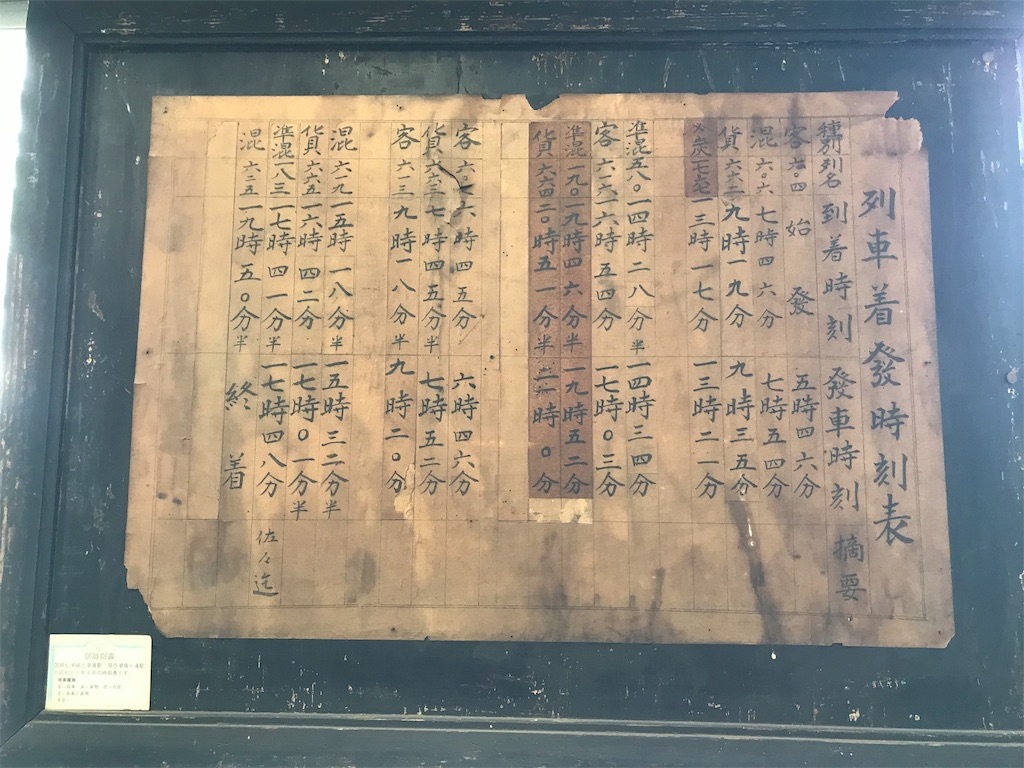 列車着發時刻表
種別 列名 到着時刻 發車時刻 摘要
客 六〇四 始發 五時四六分
混 六〇六 七時四六分 七時五四分
貨 六六二 九時一九分 九時三五分
一三時一七分 一三時二一分
準混 五八〇 一四時二八分半 一四時三四分
客 六一六 一六時五四分 一七時〇三分
準混 一九〇 一九時四六分半 一九時五二分
貨 六六四 二〇時五一分半 時〇分
客 六〇七 六時四五分 六時四六分
貨 六六三 七時四五分半 七時五二分
客 六一三 九時一八分半 九時二〇分
混 六一九 一五時一八分半 一五時三二分半
貨 六六五 一六時四二分 一七時〇一分半
準混 一八三 一七時四一分半 一七時四八分 佐々迄
混 六一五 一九時五〇分半 終着